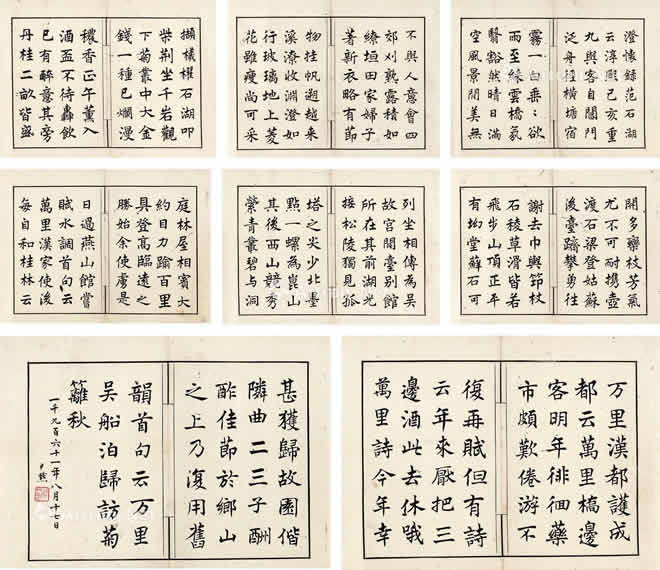 澄懷録范石湖
云淳熙己亥重
九與客自閶門
泛舟經橫塘宿
霧一白垂〻欲
雨至綵雲橋氛
翳豁然晴日滿
空風景閒美無
不與人意會四
郊刈熟露積如
繚垣田家婦子
著新衣略有節
物挂帆遡越来
溪潦收淵澄如
行玻璃地上菱
花雖瘦尚可采
擷檥櫂石湖叩
柴荆坐千岩觀
下菊叢中大金
錢一種已爛漫
穠香正午薰入
酒盃不待轟飲
已有醉意其旁
丹桂二畝皆盛
開多欒枝芳氣
尤不可耐携壺
渡石梁登姑蘇
後臺躋攀勇往
謝去巾輿筇杖
石稜草滑皆若
飛步山頂正平
有坳堂蘚石可
列坐相傳為吳
故宮閒臺别館
所在其前湖光
接松陵獨見孤
塔之尖少北墨
點一螺為崑山
其後西山競秀
縈青叢碧与洞
庭林屋相賓大
約目力踰百里
具登髙臨遠之
勝始余使虜是
日過燕山館嘗
賦水調首句云
萬里漢家使後
每自和桂林云
万里漢都護成
都云萬里橋邊
客明年徘徊藥
市頗歎倦游不
復再賦但有詩
云年來厭把三
邊酒此去休哦
萬里詩今年幸
甚獲歸故園偕
隣曲二三子酬
酢佳節於鄉山
之上乃復用舊
韻首句云万里
吳船泊歸訪菊
籬秋
一千九百六十一年八月十七日
尹默